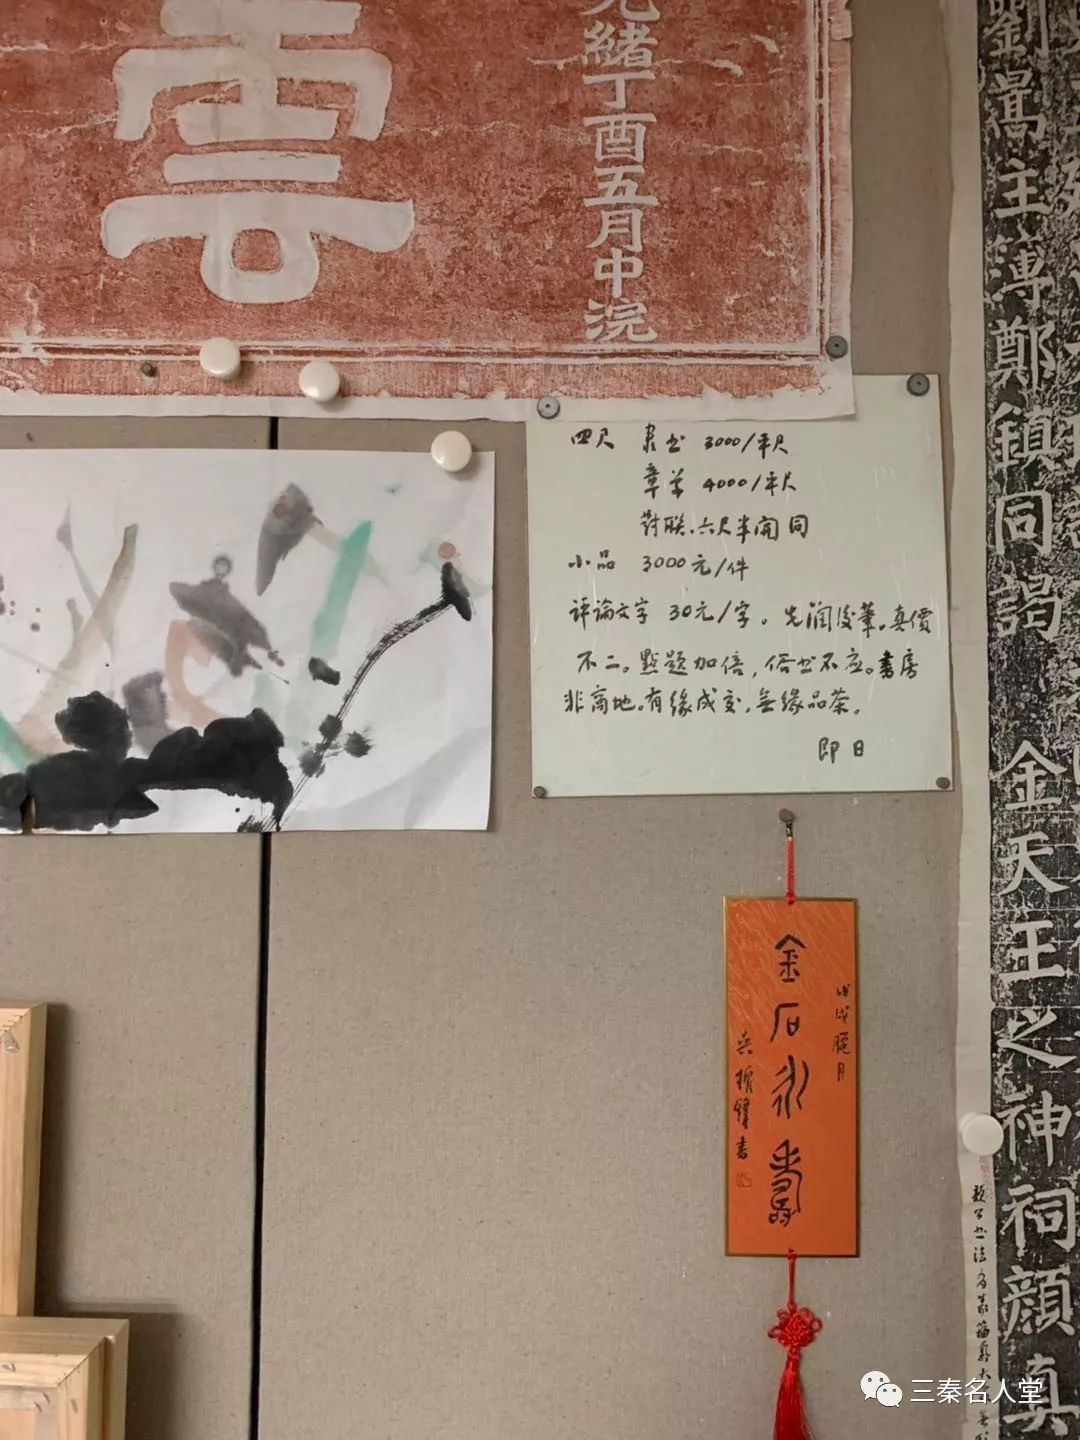 雲
光緒丁酉五月中浣
四尺 隶书 3000/平尺
章草 4000/平尺
對联、六尺半開同
小品 3000元/件
评論文字 30元/字。先润後筆。真價
不二。點题加倍,俗书不应。書房
非高地。有缘成交,無缘品茶。
即日
金石永壽
戊戌臘月
書
劉暠主薄鄭鎮同謁
金天王之神祠顏真
三秦名人堂